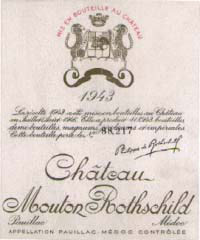 MIS EN BOUTEILLE AU CHÂTEAU
1943
La récolte 1943 a été mise en bouteilles au Château
en bouteilles
demi bouteilles, magnums
Cette bouteille porte le N° 88,217
Château
Mouton Rothschild
Pauillac Médoc
APPELLATION PAUILLAC-MÉDOC CONTRÔLÉE